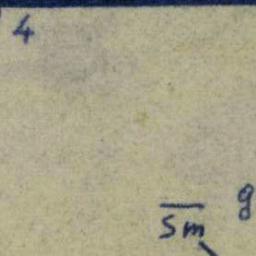 4
Sm g